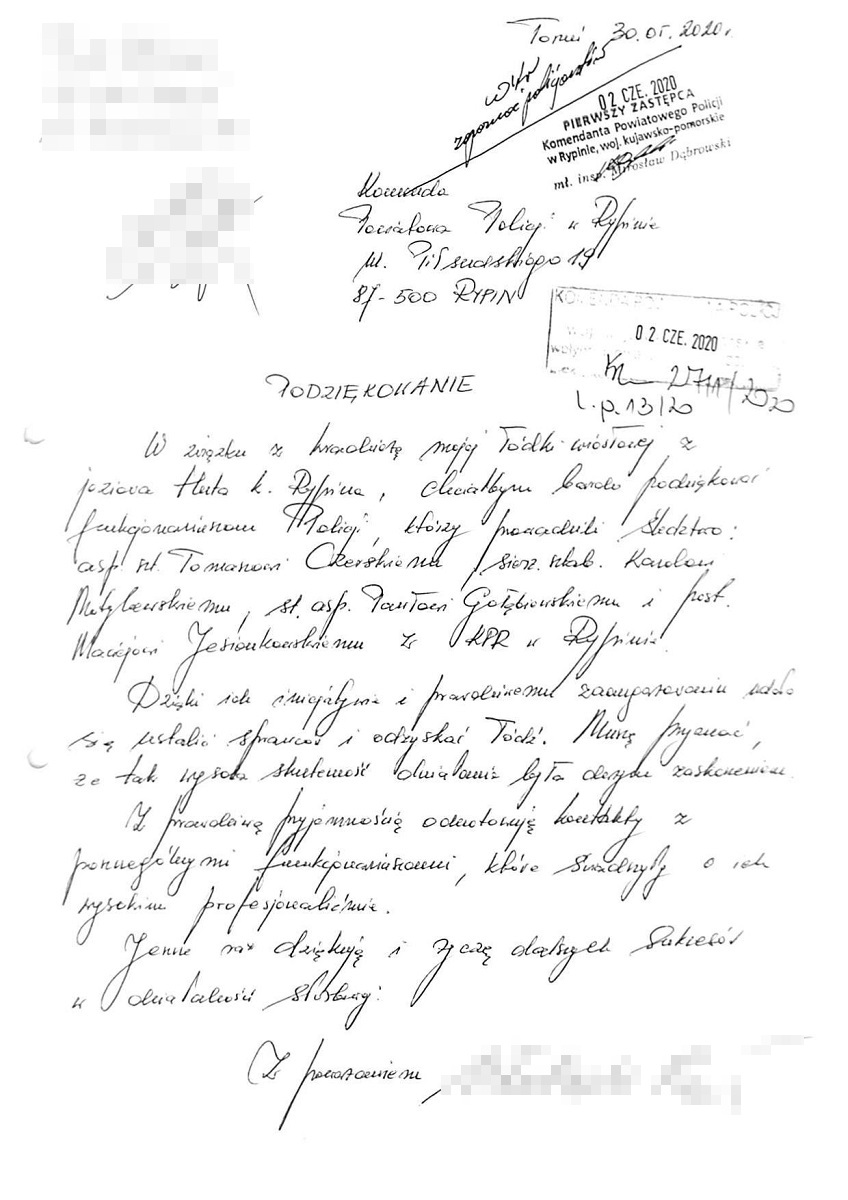 Toruń 30.05.2020r.
WKr
zapoznać policjantów
02 CZE. 2020
PIERWSZY ZASTĘPCA
Komendanta Powiatowego Policji
w Rypinie, woj. kujawsko-pomorskie
mł. insp. Mirosław Dąbrowski
Komenda
Powiatowa Policji w Rypinie
ul. Piłsudskiego 19
87-500 RYPIN
02 CZE. 2020
2020
l.p. 13/20
PODZIĘKOWANIE
W związku z kradzieżą mojej łódki wiosłowej z
jeziora Huta k. Rypina, chciałbym bardzo podziękować
funkcjonariuszom Policji, którzy prowadzili śledztwo:
asp. szt. Tomaszowi Czerskiemu, sierż. sztab. Karolowi
Motylewskiemu, st. asp. Pawłowi Gołębiowskiemu i post.
Maciejowi Jesionkowskiemu z KPP w Rypinie.
Dzięki ich inicjatywie i prawdziwemu zaangażowaniu udało
się ustalić sprawców i odzyskać łódź. Muszę przyznać,
że tak wysoka skuteczność działania była dużym zaskoczeniem.
Z prawdziwą przyjemnością odnotowuję kontakty z
poszczególnymi funkcjonariuszami, które świadczyły o ich
wysokim profesjonaliźmie.
Jeszcze raz dziękuję i życzę dalszych sukcesów
w działalności służbowej.
Z poważaniem,